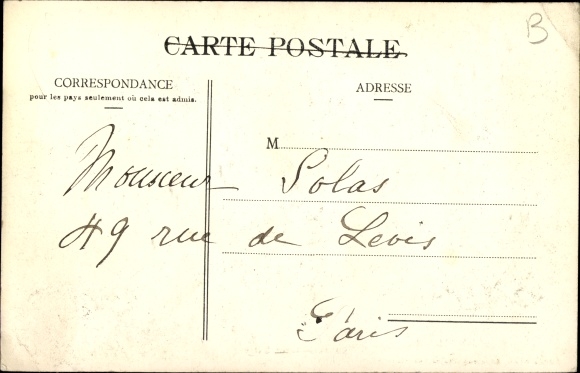 B
CARTE POSTALE
CORRESPONDANCE
pour les pays seulement où cela est admis.
ADRESSE
M
Monsieur Solas
49 rue de Levis
Paris